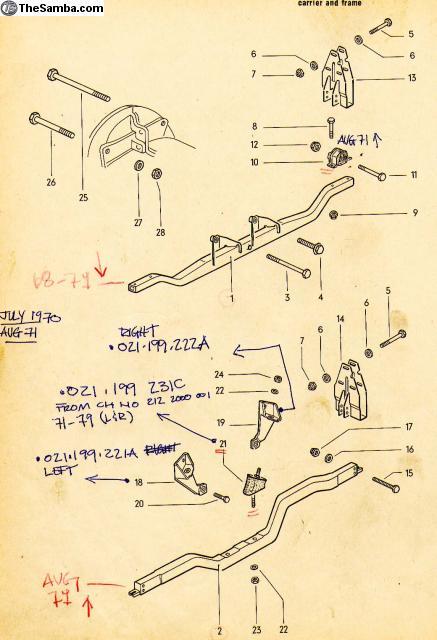 TheSamba.com
carrier and frame
5
6
6
7
13
8
AUG 71 ↑
12
10
11
9
26
25
27
28
1
3
4
JULY 1970
AUG 71
RIGHT
• 021.199.222A
5
6
14
6
7
24
22
•021.199 231C
FROM CH NO 212 2000 001
71-79 (L&R)
19
21
17
16
•021.199.221A RIGHT
LEFT
18
20
15
AUG
79 ↑
2
23
22